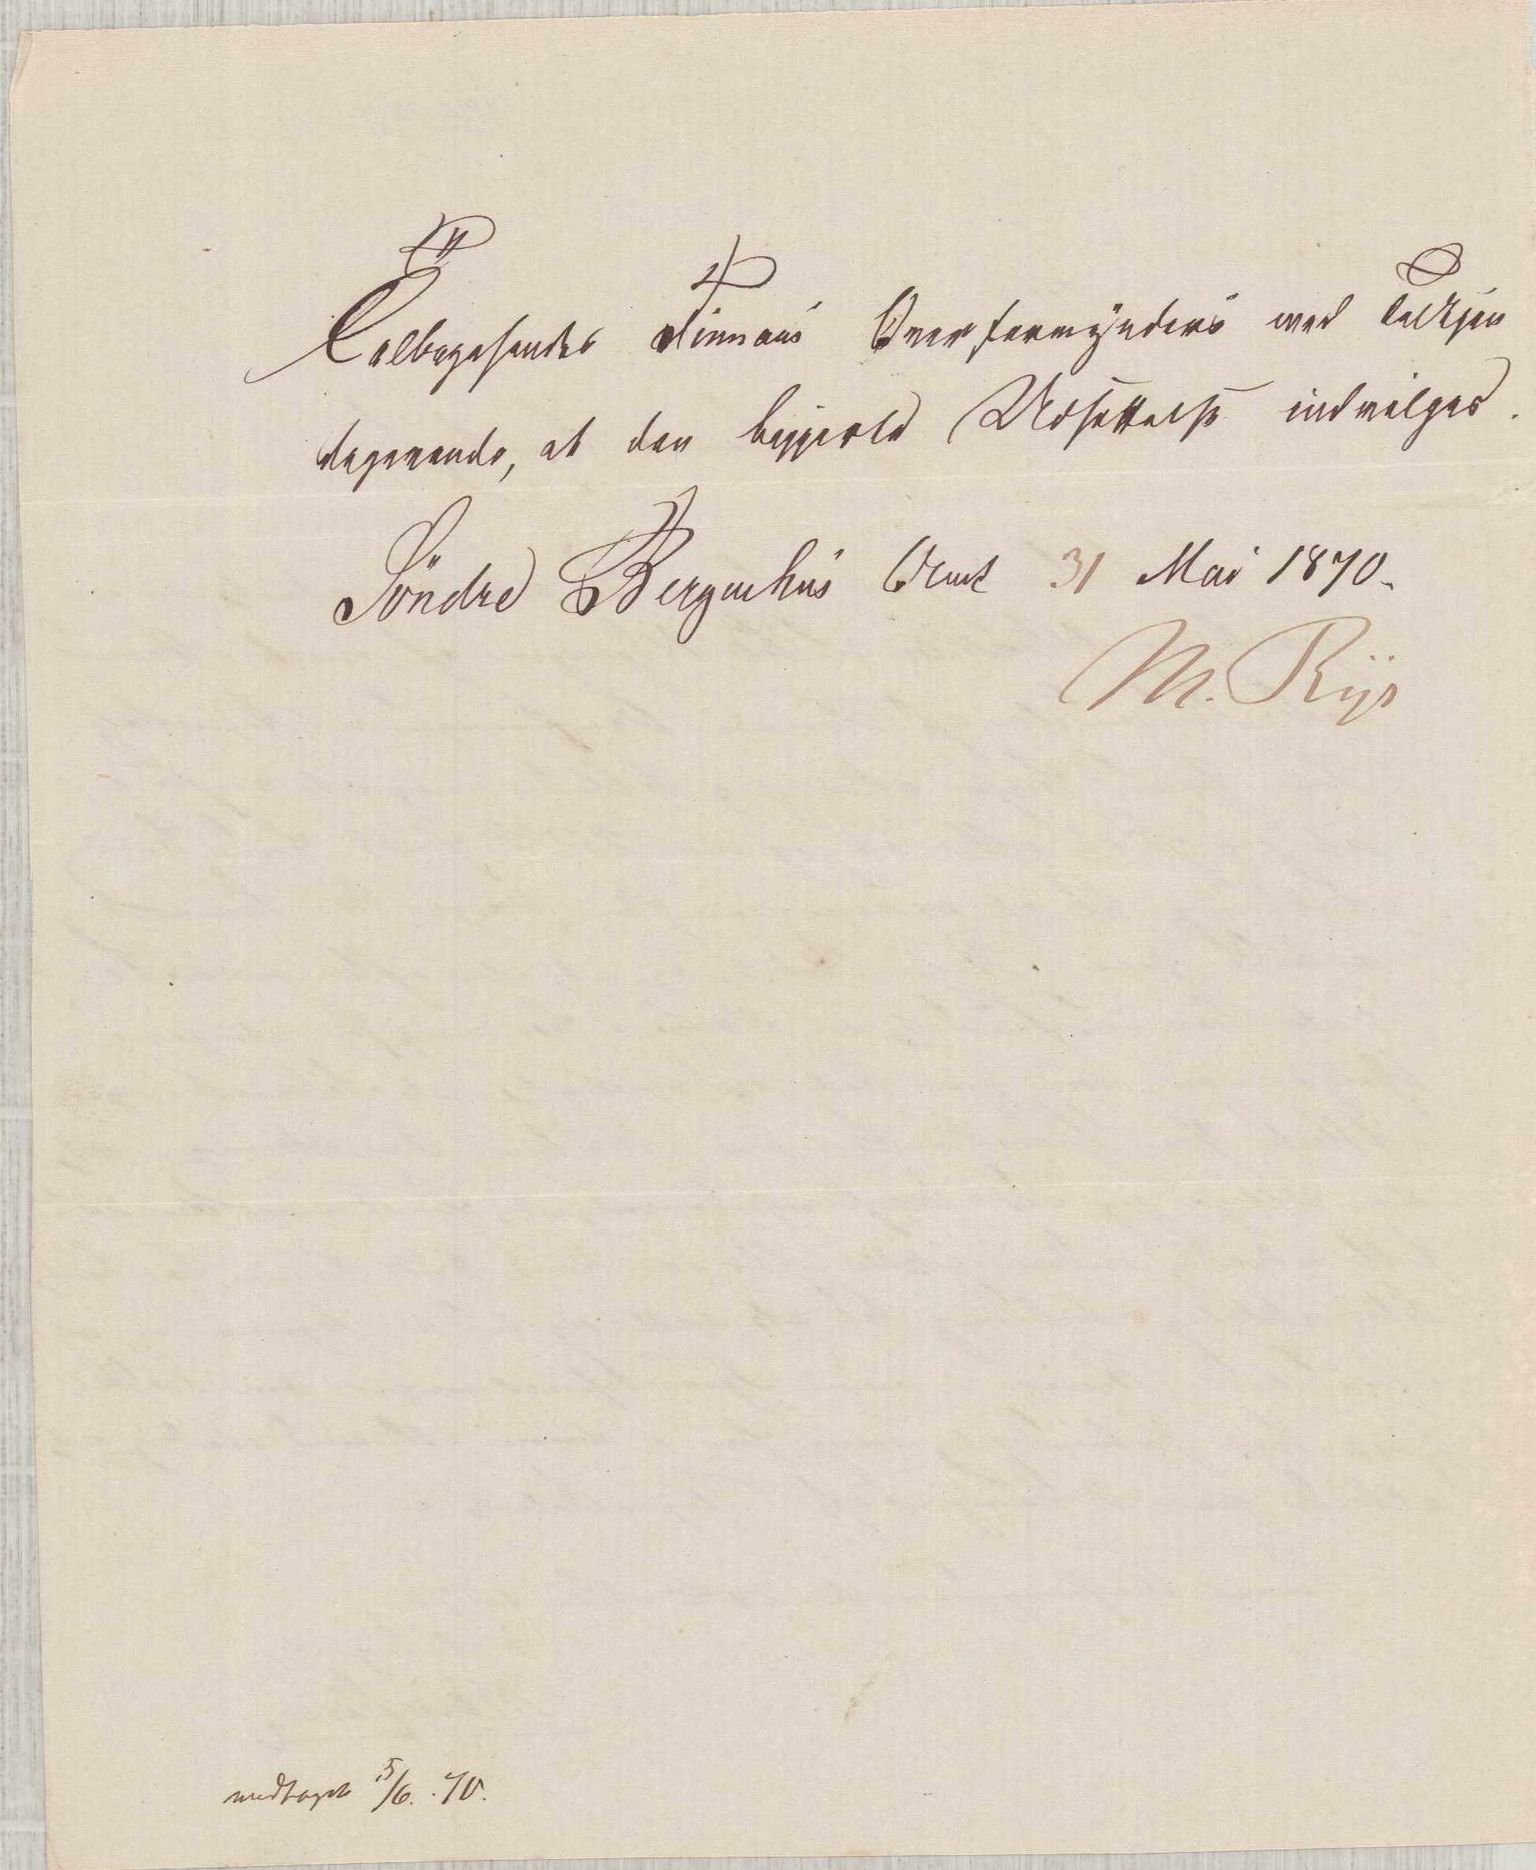 Tilbagesendes Finnaas Overformynderi med Tilkjen
degivende, at den begjerte Udsættelse indvilges.
Söndre Bergenhus Amt 31 Mai 1870.
M. Rye
modtaget 5/6. 70.